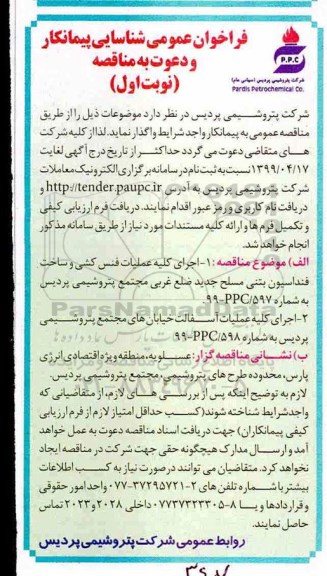 فراخوان عمومی شناسایی پیمانکار
و دعوت به مناقصه
(نوبت اول)
P.P.C
شرکت پتروشیمی پردیس (سهامی عام)
Pardis Petrochemical Co.
شرکت پتروشیمی پردیس در نظر دارد موضوعات ذیل را از طریق
مناقصه عمومی به پیمانکار واجد شرایط واگذار نماید. لذا از کلیه شرکت
های متقاضی دعوت می گردد حداکثر از تاریخ درج آگهی لغایت
۱۳۹۹/۰۴/۱۷ نسبت به ثبت نام در سامانه برگزاری الکترونیک معاملات
شرکت پتروشیمی پردیس به آدرس http://tender.paupc.ir و
دریافت نام کاربری و رمز عبور اقدام نمایند. دریافت فرم ارزیابی کیفی
و تکمیل فرم ها و ارائه کلیه مستندات مورد نیاز از طریق سامانه مذکور
انجام خواهد شد.
الف) موضوع مناقصه: ۱- اجرای کلیه عملیات فنس کشی و ساخت
فنداسیون بتنی مسلح جدید ضلع غربی مجتمع پتروشیمی پردیس
به شماره ۹۹-PPC/۵۹۷.
۲- اجرای کلیه عملیات آسفالت خیابان های مجتمع پتروشیمی
پردیس به شماره ۹۹-PPC/۵۹۸
ب) نشانی مناقصه گزار: عسلویه، منطقه ویژه اقتصادی انرژی
پارس، محدوده طرح های پتروشیمی، مجتمع پتروشیمی پردیس.
لازم به توضیح اینکه پس از بررسی های لازم، از متقاضیانی که
واجد شرایط شناخته شوند (کسب حداقل امتیاز لازم از فرم ارزیابی
کیفی پیمانکاران) جهت دریافت اسناد مناقصه دعوت به عمل خواهد
آمد و ارسال مدارک هیچگونه حقی جهت شرکت در مناقصه ایجاد
نخواهد کرد. متقاضیان می توانند در صورت نیاز به کسب اطلاعات
بیشتر با شماره تلفن های ۲-۰۷۷-۳۷۲۹۵۷۲۱ واحد امور حقوقی
و قراردادها و یا ۸-۰۷۷۳۷۳۲۳۳۰۵ داخلی ۲۰۲۸ و ۲۰۲۳ تماس
حاصل نمایند.
روابط عمومی شرکت پتروشیمی پردیس